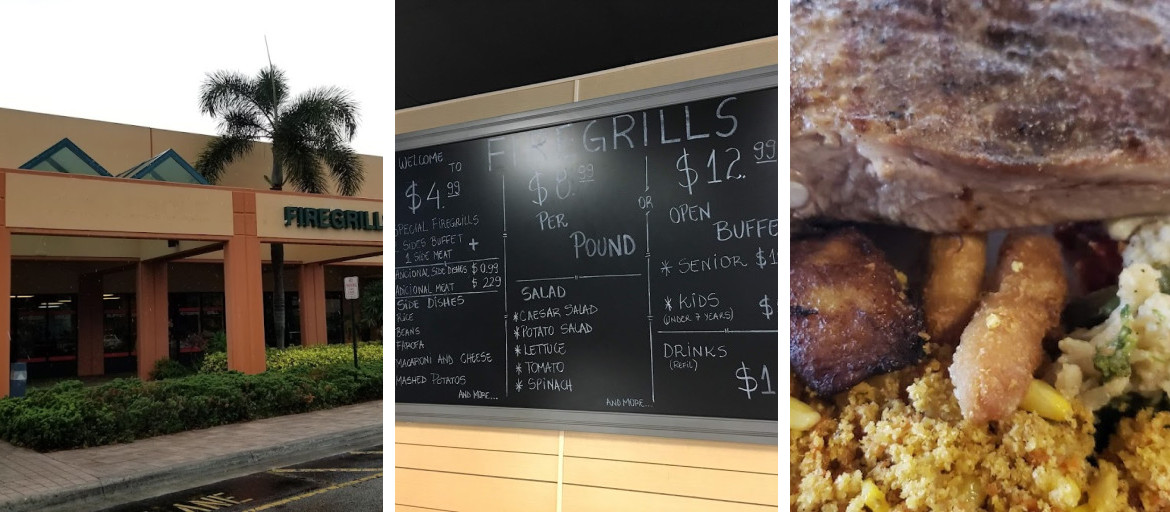 FIREGRILL
LANE
FIREGRILLS
WELCOME
TO
$4.99
SPECIAL FIREGRILLS
SIDES BUFFET +
1 SIDE MEAT
ANCIONAL SIDE DISHES $0.99
ANCIONAL MEAT $2.29
SIDE DISHES
RICE
BEANS
FAROFA
MACARONI AND CHEESE
MASHED POTATOS
AND MORE...
$8.99
PER
POUND
SALAD
* CAESAR SALAD
* POTATO SALAD
* LETTUCE
* TOMATO
* SPINACH
AND MORE...
OR
$12.99
OPEN
BUFFE
* SENIOR $1
* KIDS $
(UNDER 7 YEARS)
DRINKS
(REFIL)
$1